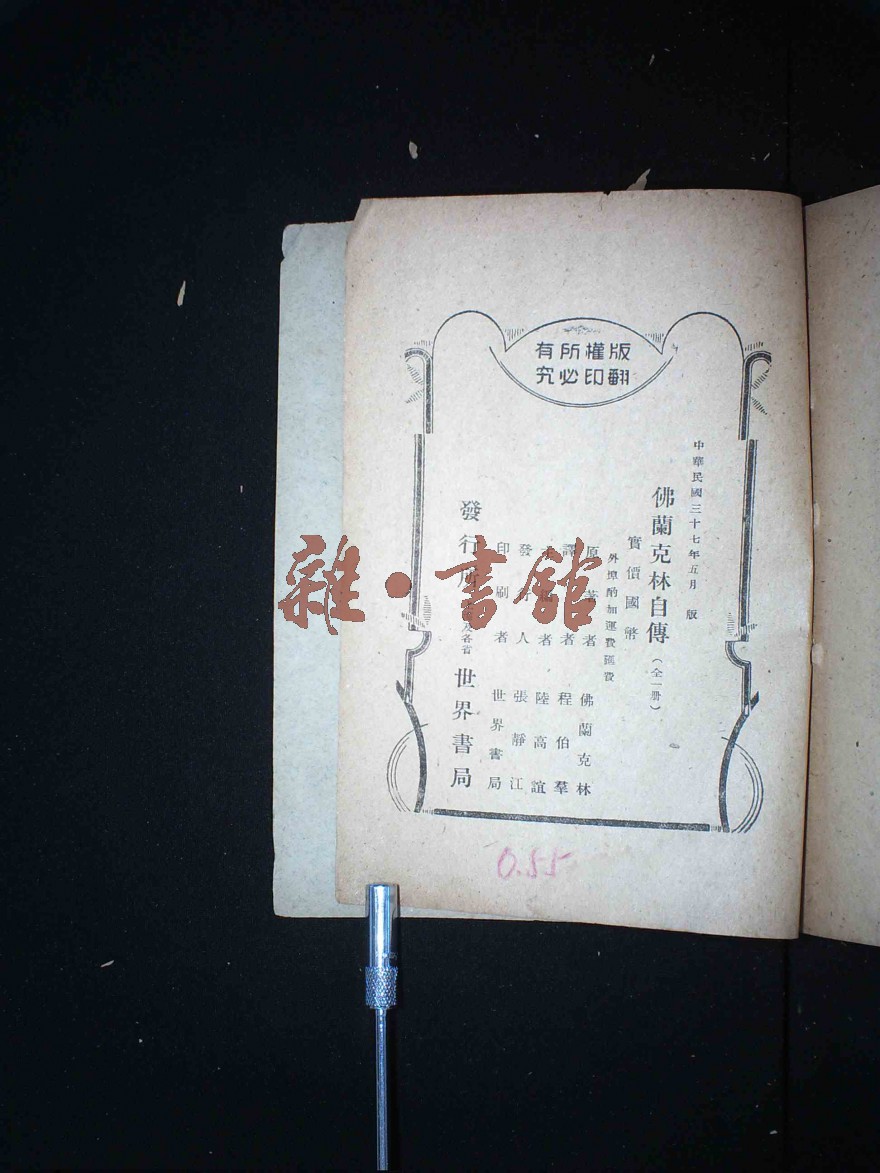 版權所有
翻印必究
中華民國三十七年五月 版
佛蘭克林自傳(全一册)
實價國幣
外埠酌加運費匯費
原著者 佛蘭克林
譯者 程伯羣
者 陸高誼
發行人 張靜江
印刷者 世界書局
發行所 及各省 世界書局
0.55
雜·書館